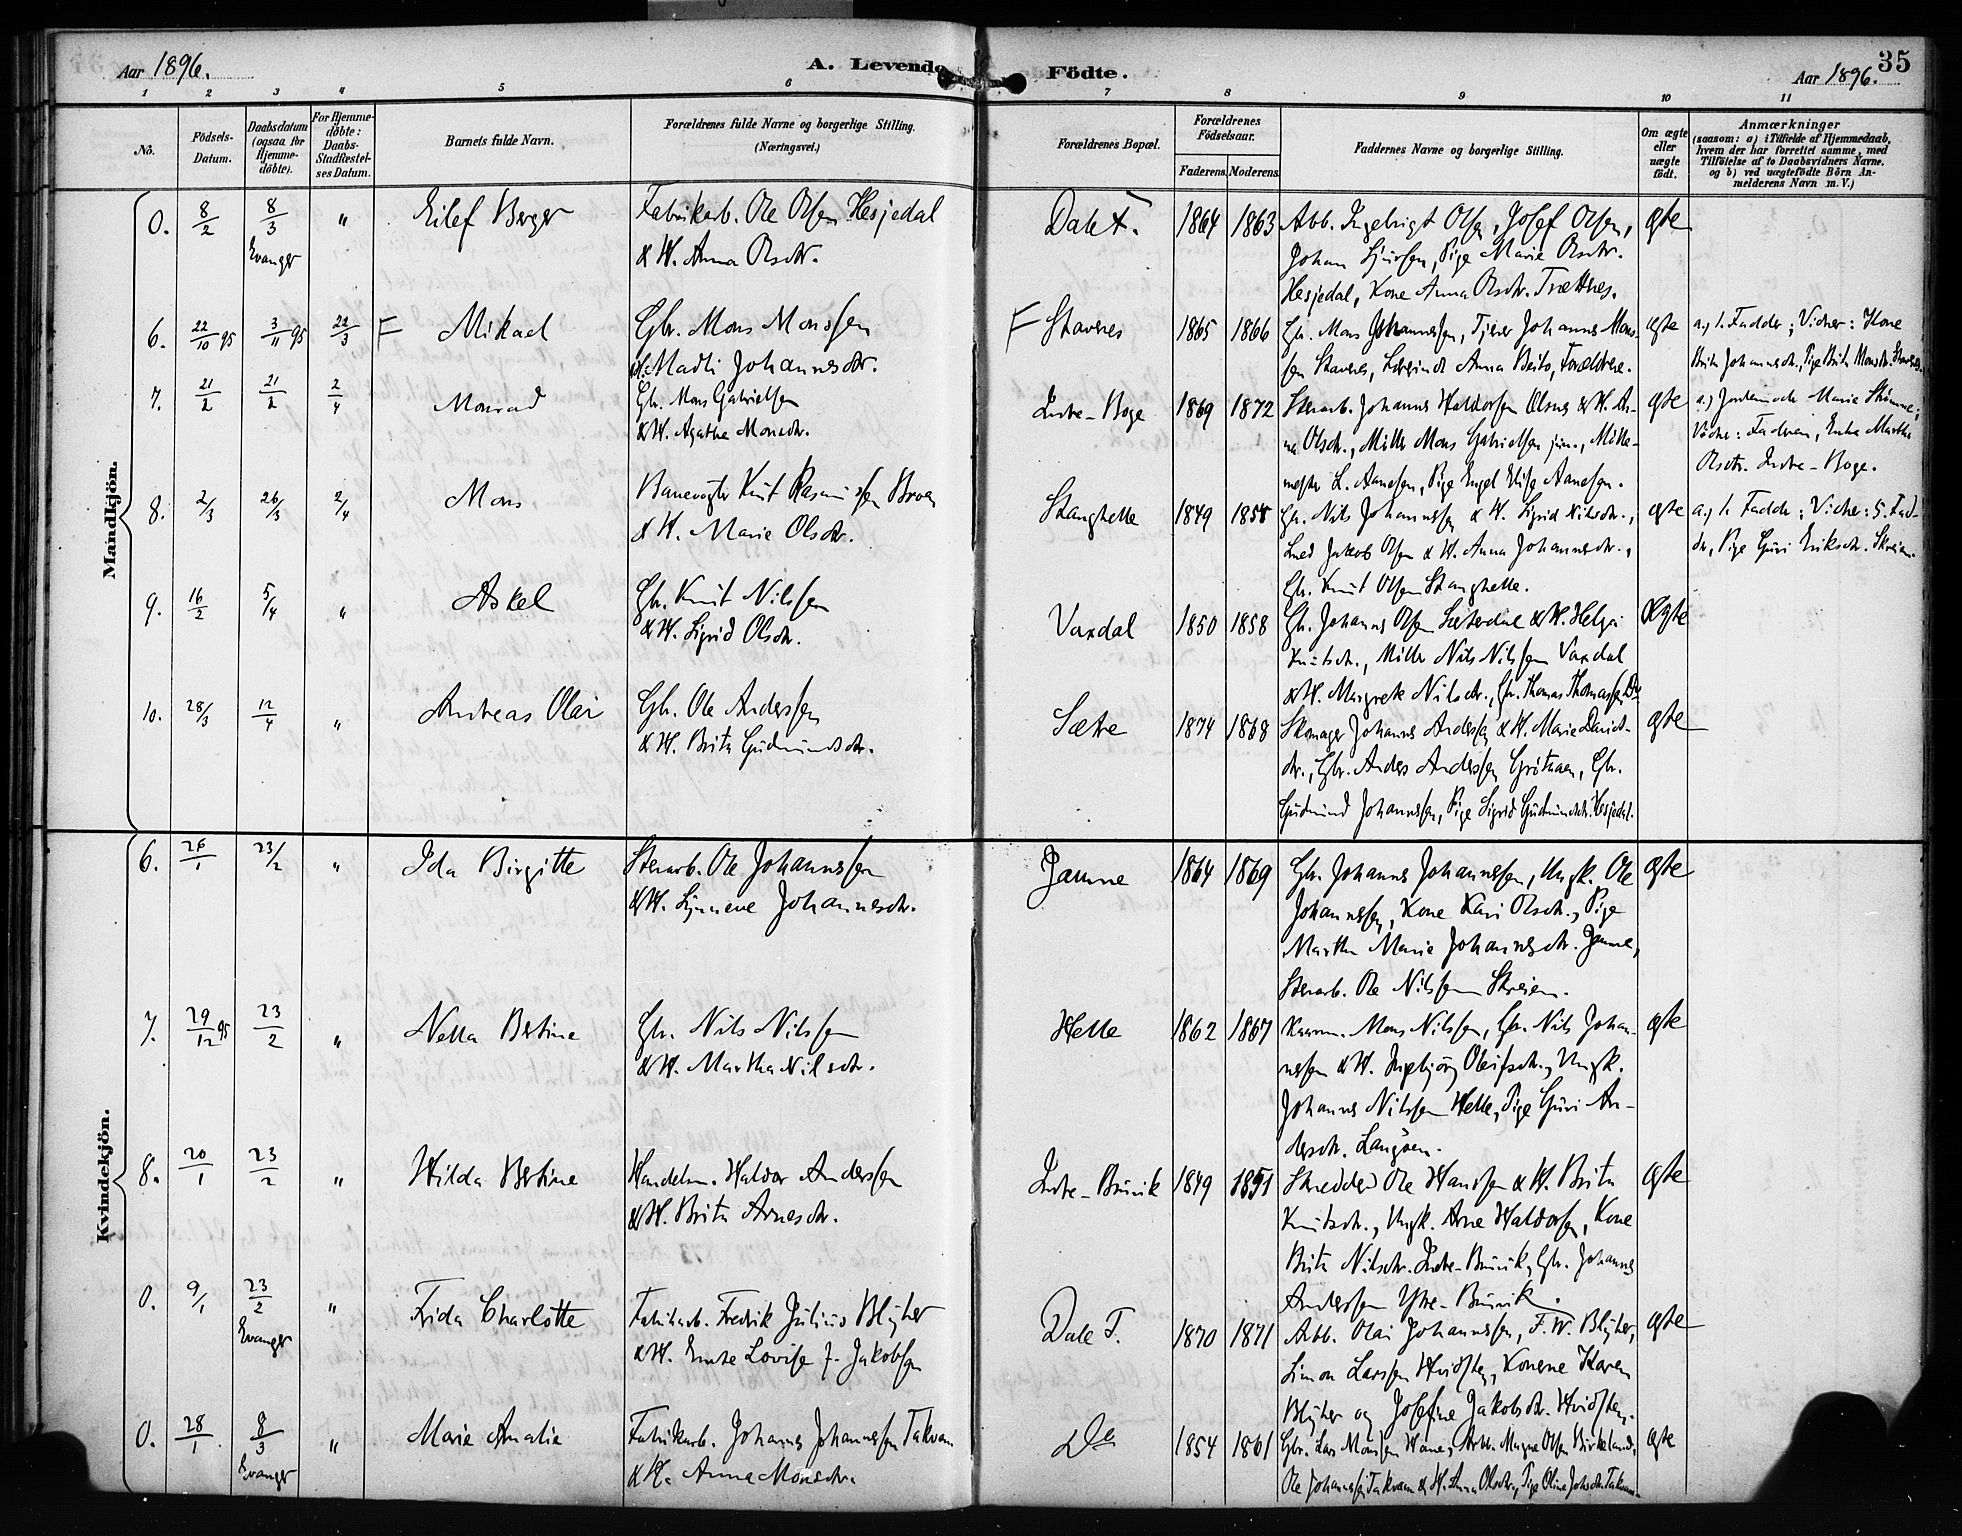 Aar 1896.
A. Levende Födte.
35
Aar 1896.
1 2 3 4 5 6 7 8 9 10 11
No.
Födsels-Datum.
Daabsdatum (ogsaa for Hjemme-döbte).
For Hjemme-döbte: Daabs-Stadfæstel-ses Datum.
Barnets fulde Navn.
Forældrenes fulde Navne og borgerlige Stilling.
(Næringsvei.)
Forældrenes Bopæl.
Forældrenes Födselsaar.
Faderens. Moderens.
Faddernes Navne og borgerlige Stilling.
Om ægte eller uægte födt.
Anmærkninger
(saasom: a) i Tilfælde af Hjemmedaab,
hvem der har forrettet samme, med
Tilföielse af to Daabsvidners Navne,
og b) ved uægtefödte Börn An-
melderens Navn m. V.)
Mandkjön.
0. 8/2 8/3 Evanger " Eilef Berger Fabrikarb. Ole Olsen Hesjedal
& H. Anna Olsdtr.
Dale F. 1864 1863 Arb. Ingebrigt Olsen, Josef Olsen,
Johan Sjursen, Pige Marie Olsdtr.
Hesjedal, Kone Anna Olsdtr. Trættnes.
ægte
6. 22/10 95 3/11 95 22/3 F Mikael Gbr. Mons Monssen
& H. Madli Johannesdtr.
F Stavnes 1865 1866 Gbr. Mons Johannessen, Tjener Johannes Mons-
sen Stavnes, Anna Forældrene.
ægte a.) 1. Fadder; Vidner: Kone
Brita Johannesdtr., Pige Brita Monsdtr. Stavnes.
7. 21/2 21/2 2/4 Monrad Gbr. Mons Gabrielsen
& H. Agathe Monsdtr.
Indre-Boge 1869 1872 Stenarb. Johannes Haldorsen Olsnes & H. An-
na Olsdtr., Möller Mons Gabrielsen jun., Mölle-
mester L. Aanesen, Pige Engel Elise Aanesen.
ægte a.) Jordemoder Marie
Vidner: Faderen, Enke Martha
Olsdtr. Indre-Boge.
8. 2/3 26/3 2/4 Mons Banevogter Knut Rasmussen Broen
& H. Marie Olsdtr.
Stanghelle 1849 1855 Gbr. Nils Johannessen & H. Sigrid Nilsdtr.,
Jakob Olsen & H. Anna Johannesdtr.,
Gbr. Knut Olsen Stanghelle.
ægte a.) 1. Fadder; Vidner: 5. Fad-
der, Pige Guri Eriksdtr. Skreien.
9. 16/2 5/4 " Askel Gbr. Knut Nilssen
& H. Sigrid Olsdtr.
Vaxdal 1850 1858 Gbr. Johannes Olsen Sæterdal & H. Helga
Knutsdtr., Möller Nils Nilssen Vaxdal
& H. Margrete Nilsdtr., Gbr. Thomas Thomassen
Ægte
10. 28/3 12/4 " Andreas Olai Gbr. Ole Anderssen
& H. Brita Gudmundsdtr.
Sætre 1874 1868 Skomager Johannes Anderssen & H. Marie Davids-
dtr., Gbr. Anders Anderssen Grötnæn, Gbr.
Gudmund Johannessen, Pige Sigrid Gudmundsdtr. Hesjedal.
ægte
Kvindekjön.
6. 26/1 23/2 " Ida Birgitte Stenarb. Ole Johannessen
& H. Synneve Johannesdtr.
Jamne 1864 1869 Gbr. Johannes Johannessen, Ungk. Ole
Johannessen, Kone Kari Olsdtr., Pige
Martha Marie Johannesdtr. Jamne,
Stenarb. Ole Nilssen Skreien.
ægte
7. 29/12 95 23/2 " Nella Bertine Gbr. Nils Nilssen
& H. Martha Nilsdtr.
Helle 1862 1867 Mons Nilssen, Gbr. Nils Johan-
nessen & H. Ingebjörg Oleifsdtr., Ungk.
Johannes Nilssen Helle, Pige Guri An-
dersdtr. Langöen.
ægte
8. 20/1 23/2 " Hilda Bertine Handelsm. Haldor Anderssen
& H. Brita Arnesdtr.
Indre-Bruvik 1849 1851 Skrædder Ole Hanssen & H. Brita
Knutsdtr., Ungk. Arne Haldorsen, Kone
Brita Nilsdtr. Indre-Bruvik, Gbr. Johannes
Anderssen Ytre-Bruvik.
ægte
0. 9/1 23/2 Evanger " Frida Charlotte Fabrikarb. Fredrik Julius Blyher
& H. Emte Lovise f. Jakobsen
Dale F. 1870 1871 Arb. Olai Johannessen, F. W. Blyher,
Simon Larssen Hvidsten, Konerne Karen
Blyher og Josefine Jakobsdtr. Hvidsten.
ægte
0. 28/1 8/3 Evanger " Marie Amalie Fabrikarb. Johannes Johannessen Takvam
& H. Anna Monsdtr.
Do 1854 1861 Gbr. Lars Monssen Hane, Arb. Magne Olsen Birkeland,
Ole Johannessen Takvam & H. Anna Olsdtr., Pige Oline Johsdtr. Takvam.
ægte